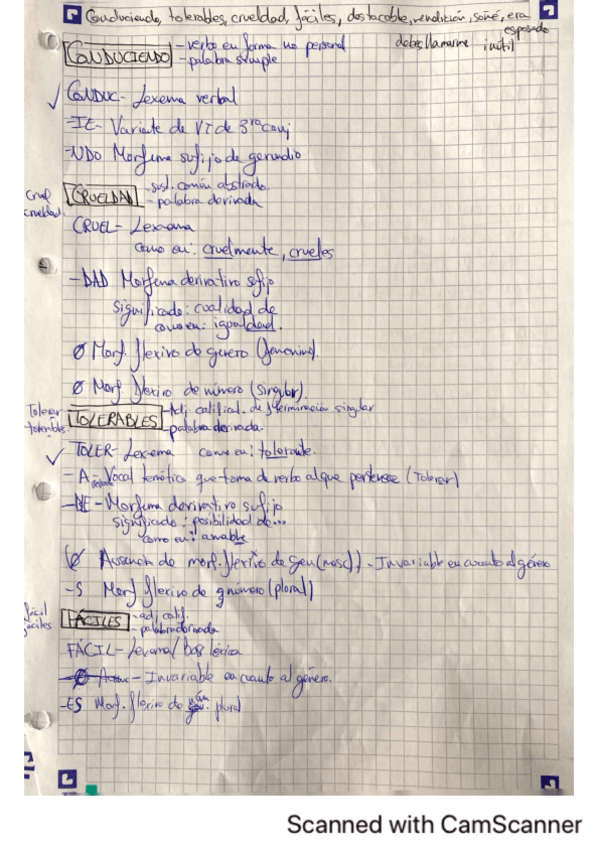 Conduciendo, tolerables, crueldad, fáciles, destacable, rendición, soñé, era
esposado
debes llamarme inútil
CONDUCIENDO - verbo en forma no personal
- palabra simple
CONDUC- Lexema verbal
-IE- Variante de VT de 3ra conj
-NDO Morfema sufijo de gerundio
Cruel
crueldad
CRUELDAD - sust. común abstrado.
- palabra derivada
CRUEL- Lexema
como en: cruelmente, crueles
-DAD Morfema derivativo sufijo
significado: cualidad de
como en: igualdad.
Ø Morf. flexivo de género (femenino).
Ø Morf flexivo de número (singular).
Tolerar
tolerables
TOLERABLES - Adj calificat. de terminación singular
- palabra derivada.
TOLER- Lexema como en: tolerante.
- A - Vocal temática que toma de verbo al que pertenece (Tolerar)
-BLE - Morfema derivativo sufijo
significado: posibilidad de...
como en: amable
Ø Ausencia de morf. flexivo de gen (masc)) - Invariable en cuanto al género
-S Morf flexivo de número (plural)
fácil
fáciles
FÁCILES - adj calif.
- palabra derivada
FÁCIL- Lexema/ base léxica
- Invariable en cuanto al género.
-ES Morf. flexivo de núm plural
Scanned with CamScanner